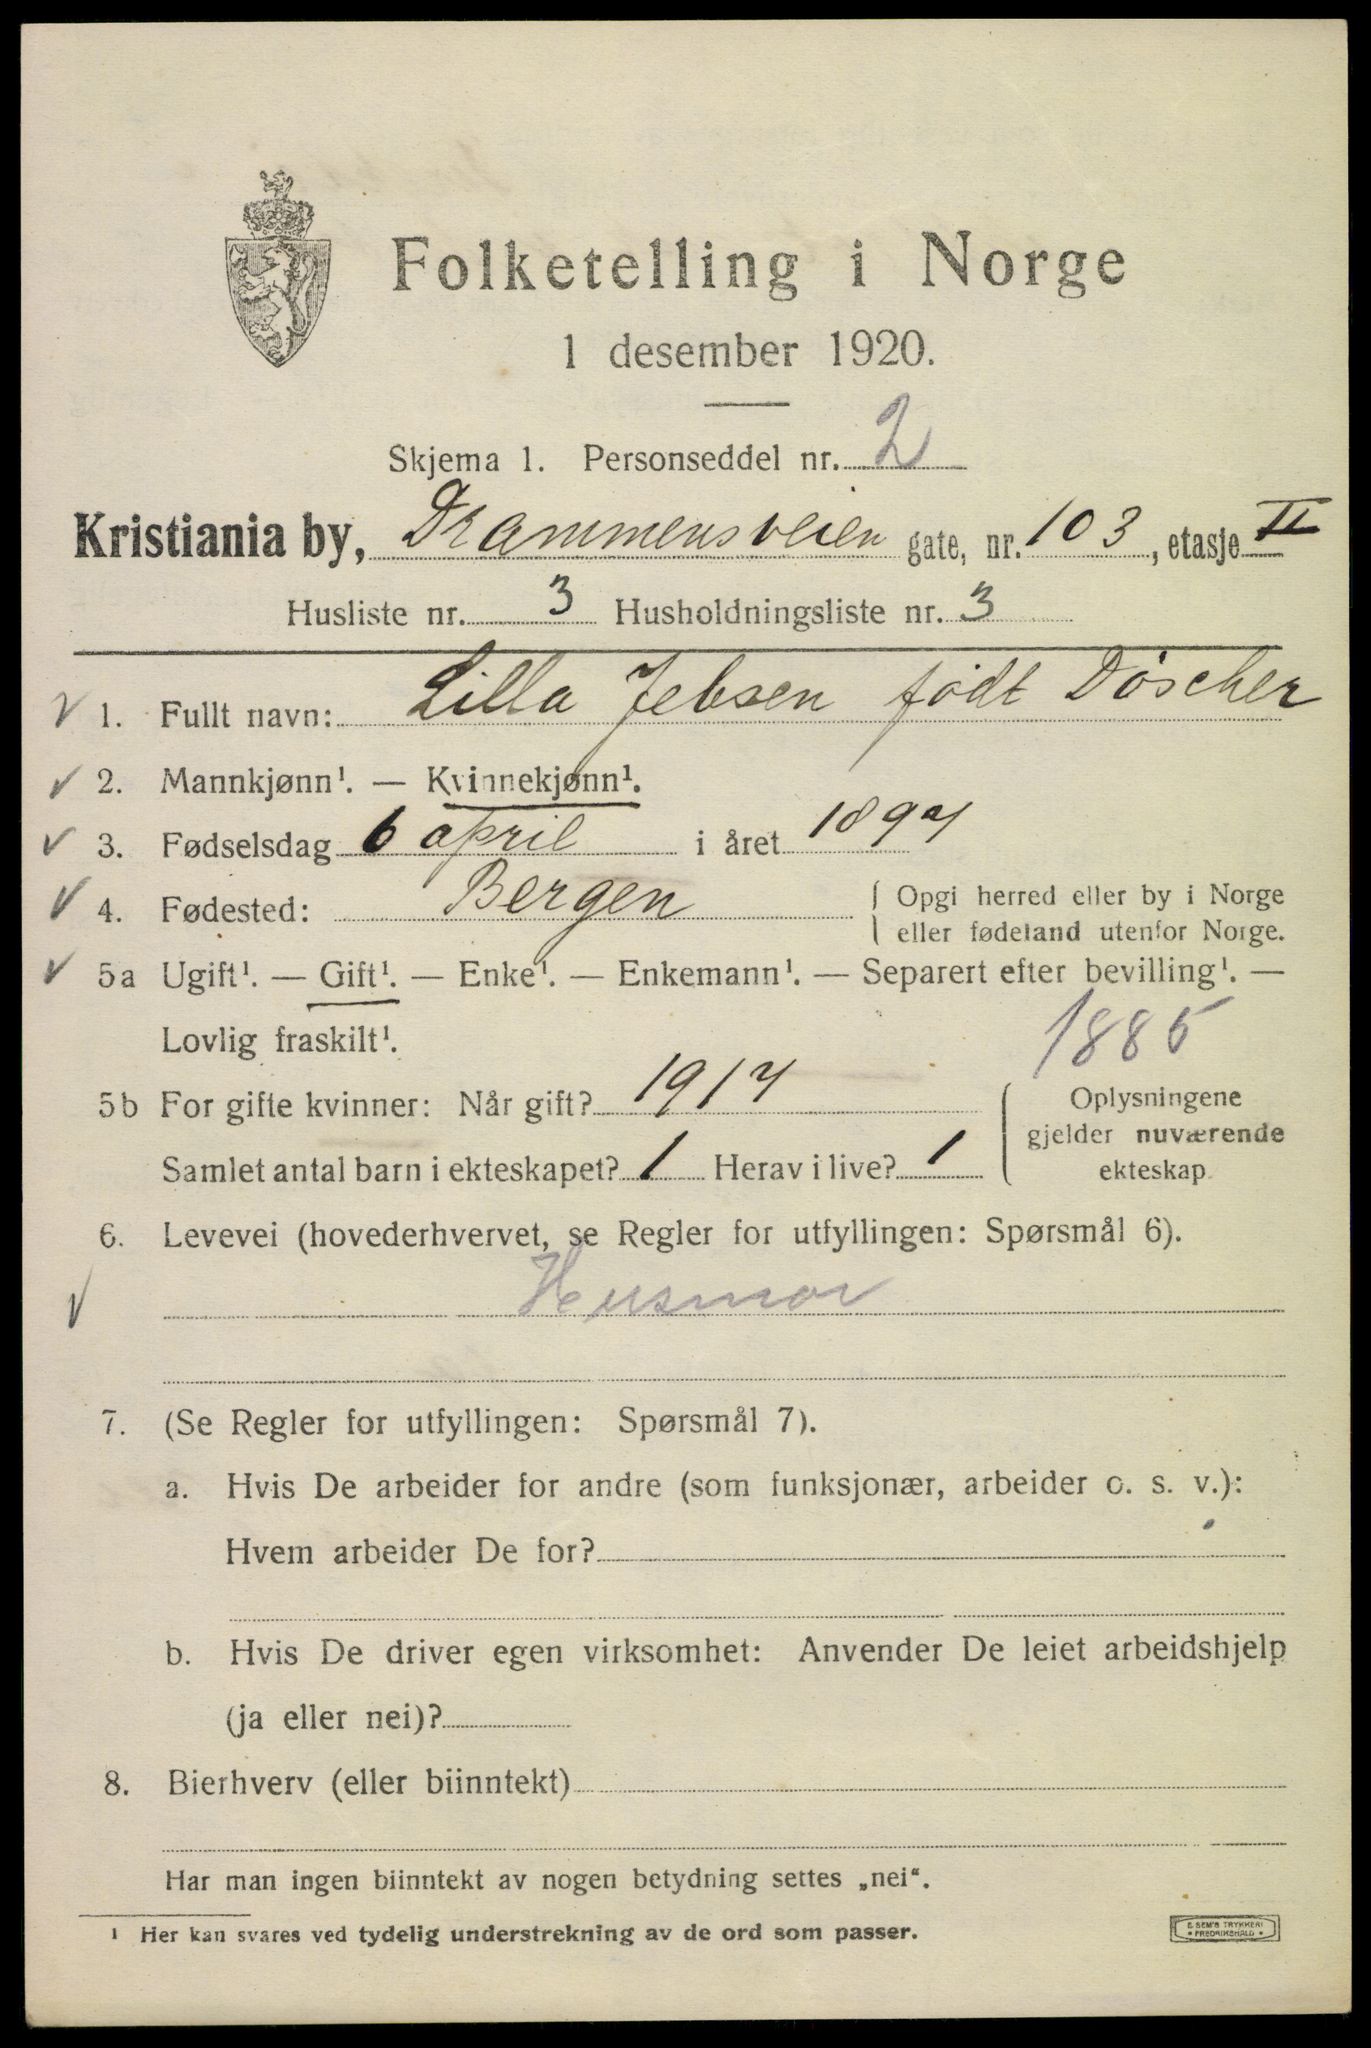 Folketelling i Norge
1 desember 1920.
Skjema 1. Personseddel nr. 2
Kristiania by, Drammensveien gate, nr. 103, etasje II
Husliste nr. 3 Husholdningsliste nr. 3
1. Fullt navn: Lilla Jebsen født Döscher
2. Mannkjønn¹. — Kvinnekjønn¹.
3. Fødselsdag 6 april i året 1897
4. Fødested: Bergen { Opgi herred eller by i Norge
eller fødeland utenfor Norge.
5a Ugift¹. — Gift¹. — Enke¹. — Enkemann¹. — Separert efter bevilling¹. —
Lovlig fraskilt¹.
1885
5b For gifte kvinner: Når gift? 1917
Samlet antal barn i ekteskapet? 1 Herav i live? 1
Oplysningene
gjelder nuværende
ekteskap.
6. Levevei (hovederhvervet, se Regler for utfyllingen: Spørsmål 6).
Husmor
7. (Se Regler for utfyllingen: Spørsmål 7).
a. Hvis De arbeider for andre (som funksjonær, arbeider o. s. v.):
Hvem arbeider De for?
b. Hvis De driver egen virksomhet: Anvender De leiet arbeidshjelp
(ja eller nei)?
8. Bierhverv (eller biinntekt)
Har man ingen biinntekt av nogen betydning settes „nei“.
¹ Her kan svares ved tydelig understrekning av de ord som passer.
E SEM'S TRYKKERI
• FREDRIKSHALD •